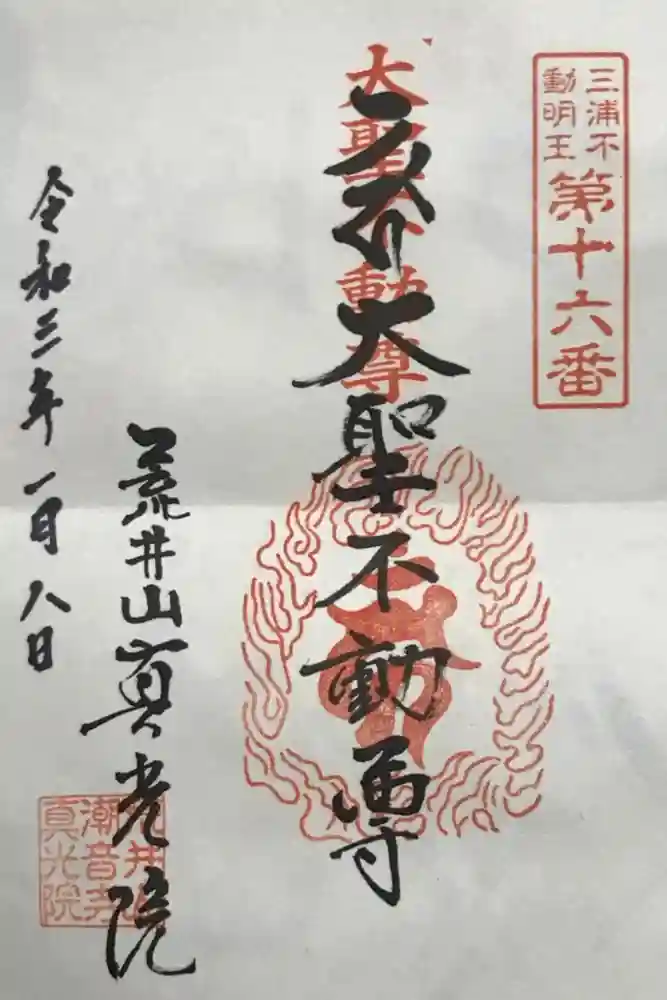 三浦不
動明王
第十六番
大聖不動尊
大聖不動尊
荒井山真光院
令和三年一月八日
荒井山
潮音寺
真光院